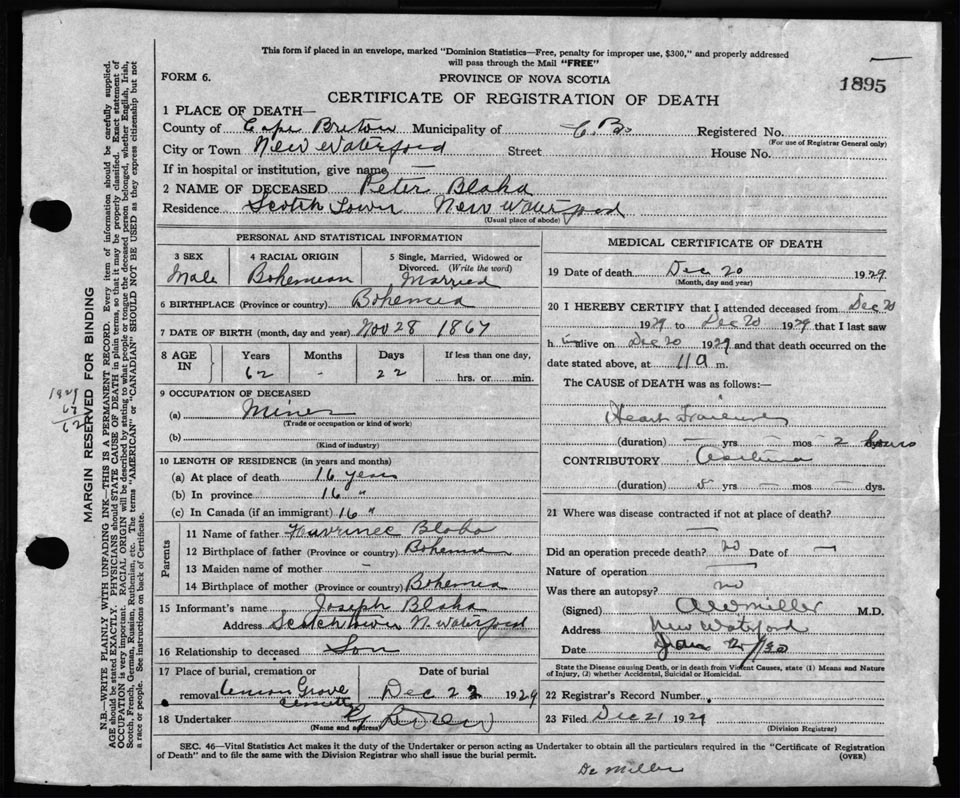 This form if placed in an envelope, marked "Dominion Statistics—Free, penalty for improper use, $300," and properly addressed
will pass through the Mail "FREE"
FORM 6.
PROVINCE OF NOVA SCOTIA
1895
CERTIFICATE OF REGISTRATION OF DEATH
1 PLACE OF DEATH—
County of Cape Breton Municipality of C.B. Registered No.
(For use of Registrar General only)
City or Town New Waterford Street House No.
If in hospital or institution, give name —
2 NAME OF DECEASED Peter Blaha
Residence Scotch Town New Waterford
(Usual place of abode)
PERSONAL AND STATISTICAL INFORMATION
3 SEX
Male
4 RACIAL ORIGIN
Bohemian
5 Single, Married, Widowed or
Divorced. (Write the word)
Married
6 BIRTHPLACE (Province or country) Bohemia
7 DATE OF BIRTH (month, day and year) Nov 28 1867
8 AGE IN
Years Months Days If less than one day,
62 - 22 hrs. or min.
9 OCCUPATION OF DECEASED
(a) Miner
(Trade or occupation or kind of work)
(b)
(Kind of industry)
10 LENGTH OF RESIDENCE (in years and months)
(a) At place of death 16 years
(b) In province 16 "
(c) In Canada (if an immigrant) 16 "
Parents
11 Name of father Blaha
12 Birthplace of father (Province or country) Bohemia
13 Maiden name of mother -
14 Birthplace of mother (Province or country) Bohemia
15 Informant's name Joseph Blaha
Address Scotchtown N. Waterford
16 Relationship to deceased Son
17 Place of burial, cremation or
removal Grove
Date of burial
Dec 22 1929
18 Undertaker
(Name and address)
MEDICAL CERTIFICATE OF DEATH
19 Date of death Dec 20 1929
(Month, day and year)
20 I HEREBY CERTIFY that I attended deceased from Dec 20
1929 to Dec 20 1929 that I last saw
him alive on Dec 20 1929 and that death occurred on the
date stated above, at 11 a m.
The CAUSE of DEATH was as follows:—
Heart
(duration) — yrs — mos — 2 hours
CONTRIBUTORY Asthma
(duration) 8 yrs — mos — dys.
21 Where was disease contracted if not at place of death?
—
Did an operation precede death? no Date of —
Nature of operation —
Was there an autopsy? no
(Signed) Miller M.D.
Address New Waterford
Date Jan 2/30
State the Disease causing Death, or in death from Violent Causes, state (1) Means and Nature
of Injury, (2) whether Accidental, Suicidal or Homicidal.
22 Registrar's Record Number
23 Filed Dec 21 1929
(Division Registrar)
SEC. 46—Vital Statistics Act makes it the duty of the Undertaker or person acting as Undertaker to obtain all the particulars required in the "Certificate of Registration
of Death" and to file the same with the Division Registrar who shall issue the burial permit.
(OVER)
De Miller
1929
67
62
MARGIN RESERVED FOR BINDING
N.B.—WRITE PLAINLY WITH UNFADING INK—THIS IS A PERMANENT RECORD. Every item of information should be carefully supplied.
AGE should be stated EXACTLY. PHYSICIANS should STATE CAUSE OF DEATH in plain terms, so that it may be properly classified. Exact statement of
OCCUPATION is very important. RACIAL ORIGIN will be described by stating to what people or tongue the deceased person belonged, whether English, Irish,
Scotch, French, German, Russian, Ruthenian, etc. The terms "AMERICAN" or "CANADIAN" SHOULD NOT BE USED as they express citizenship but not
a race or people. See instructions on back of Certificate.